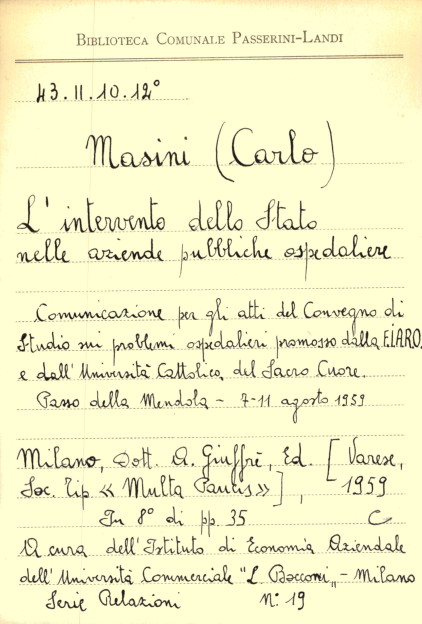 BIBLIOTECA COMUNALE PASSERINI-LANDI
43.II.10.12°
Masini (Carlo)
L'intervento dello Stato
nelle aziende pubbliche ospedaliere
Comunicazione per gli atti del Convegno di
Studio sui problemi ospedalieri promosso dalla F.I.A.R.O.
e dall'Università Cattolica del Sacro Cuore.
Passo della Mendola - 7-11 agosto 1959
Milano, Dott. A. Giuffrè, Ed. [Varese,
Soc. Tip. «Multa Paucis»], 1959
In 8° di pp. 35 C
A cura dell'Istituto di Economia Aziendale
dell'Università Commerciale "L. Bocconi" - Milano
Serie Relazioni N. 19